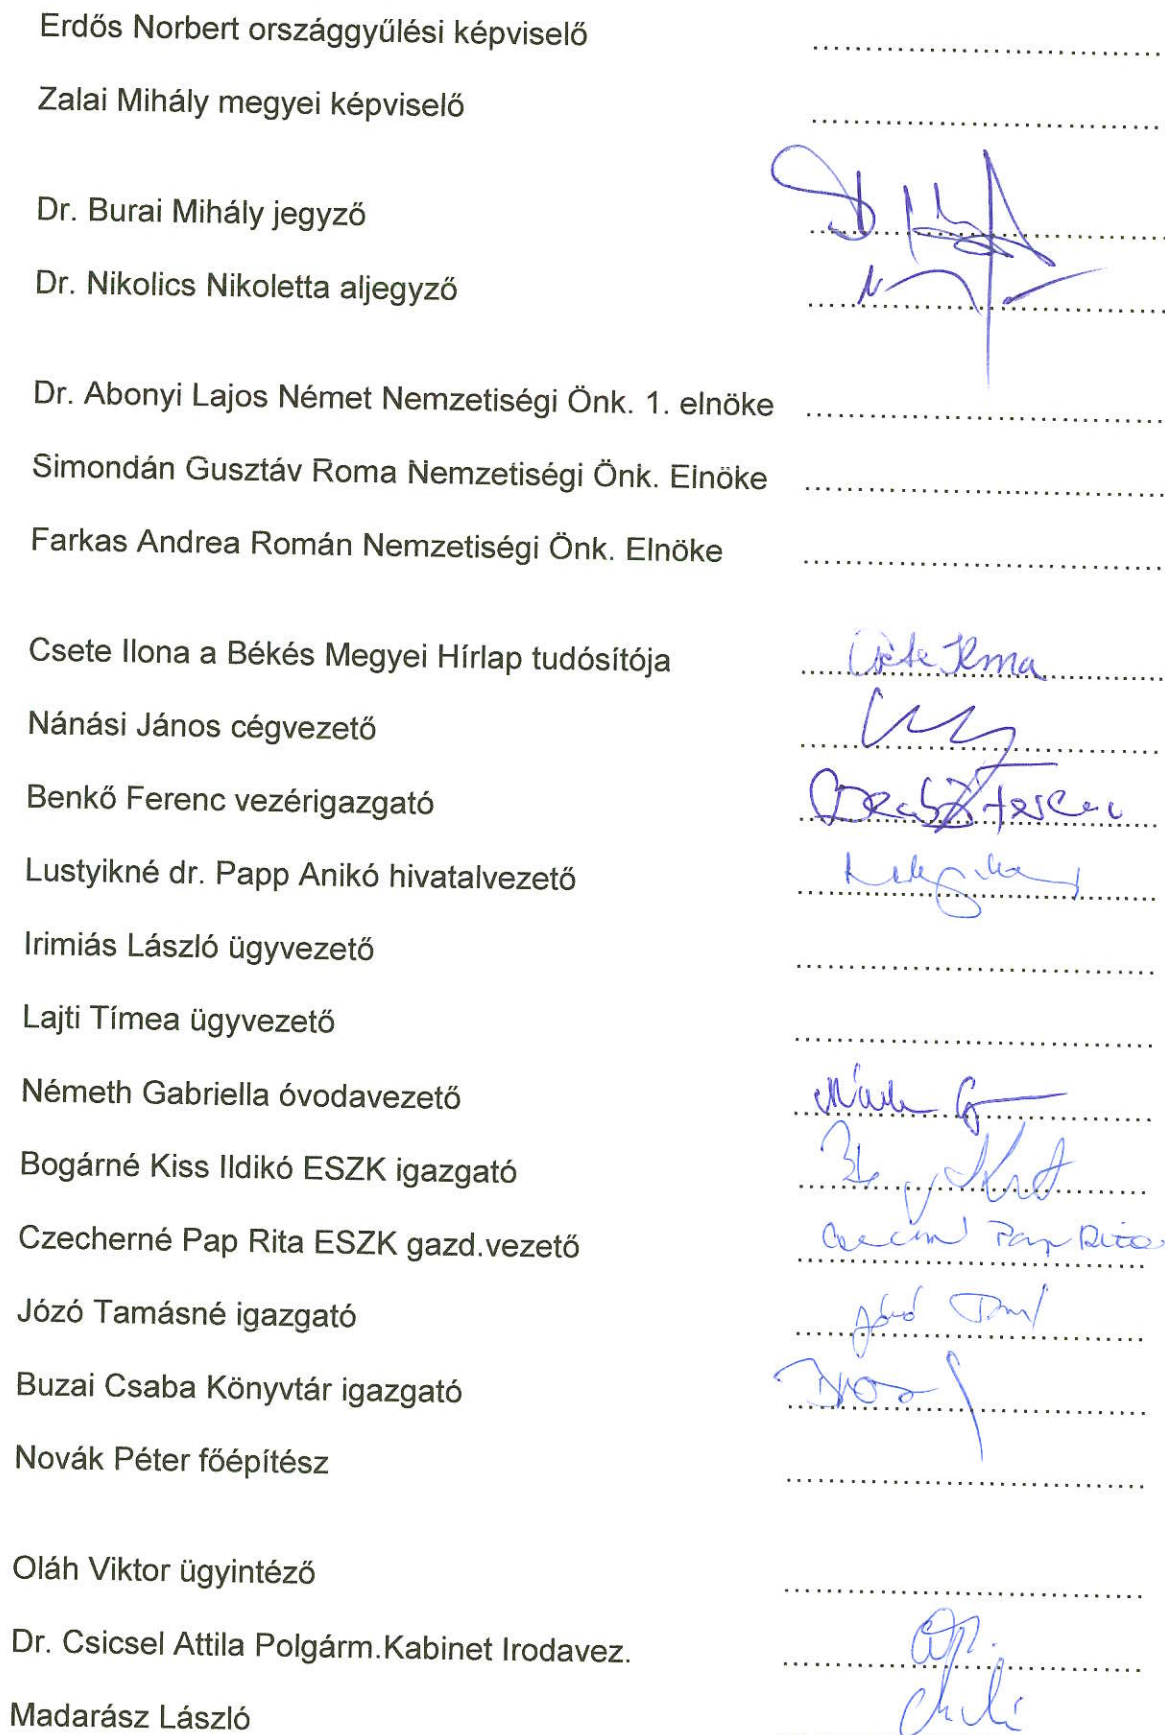 Erdős Norbert országgyűlési képviselő
Zalai Mihály megyei képviselő
Dr. Burai Mihály jegyző
Dr. Nikolics Nikoletta aljegyző
Dr. Abonyi Lajos Német Nemzetiségi Önk. 1. elnöke
Simondán Gusztáv Roma Nemzetiségi Önk. Elnöke
Farkas Andrea Román Nemzetiségi Önk. Elnöke
Csete Ilona a Békés Megyei Hírlap tudósítója Csete Ilona
Nánási János cégvezető
Benkő Ferenc vezérigazgató
Lustyikné dr. Papp Anikó hivatalvezető
Irimiás László ügyvezető
Lajti Tímea ügyvezető
Németh Gabriella óvodavezető
Bogárné Kiss Ildikó ESZK igazgató
Czecherné Pap Rita ESZK gazd.vezető Pap Rita
Józó Tamásné igazgató
Buzai Csaba Könyvtár igazgató
Novák Péter főépítész
Oláh Viktor ügyintéző
Dr. Csicsel Attila Polgárm.Kabinet Irodavez.
Madarász László